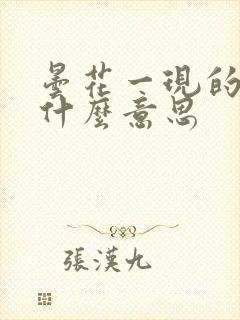 曇花一現的
什麼意思
張漢九